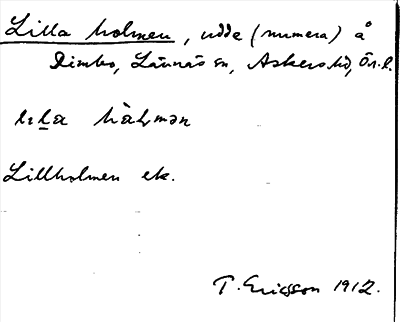 Lilla holmen, udde (numera) å
Rimbo, Lännäs sn, Askers hd, Ör. l.
lɪla hàlmən
Lillholmen ek.
T. Ericsson 1912.